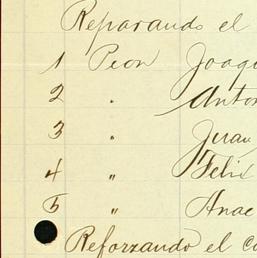 Reparando el
1 Peon Joaqu
2 " Anton
3 " Juan
4 " Felix
5 " Anac
Reforzando el Ca